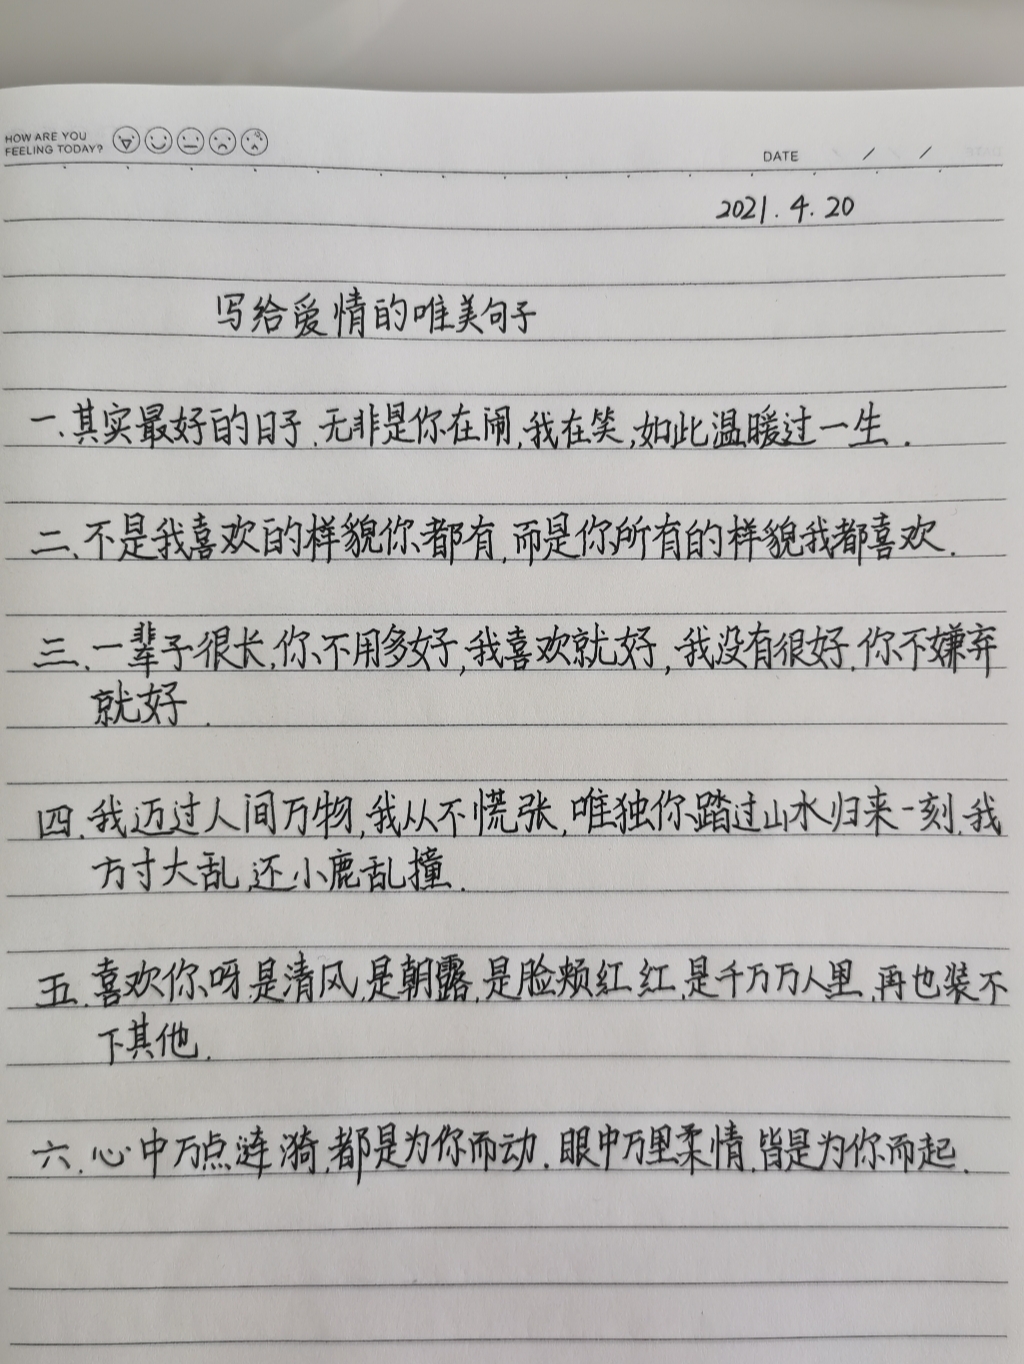 HOW ARE YOU
FEELING TODAY?
DATE / /
2021.4.20
写给爱情的唯美句子
一.其实最好的日子.无非是你在闹,我在笑,如此温暖过一生.
二.不是我喜欢的样貌你都有,而是你所有的样貌我都喜欢.
三.一辈子很长,你不用多好,我喜欢就好,我没有很好.你不嫌弃
就好.
四.我迈过人间万物,我从不慌张,唯独你踏过山水归来一刻.我
方寸大乱,还小鹿乱撞.
五.喜欢你呀.是清风,是朝露,是脸颊红红,是千万万人里,再也装不
下其他.
六.心中万点涟漪,都是为你而动.眼中万里柔情,皆是为你而起.